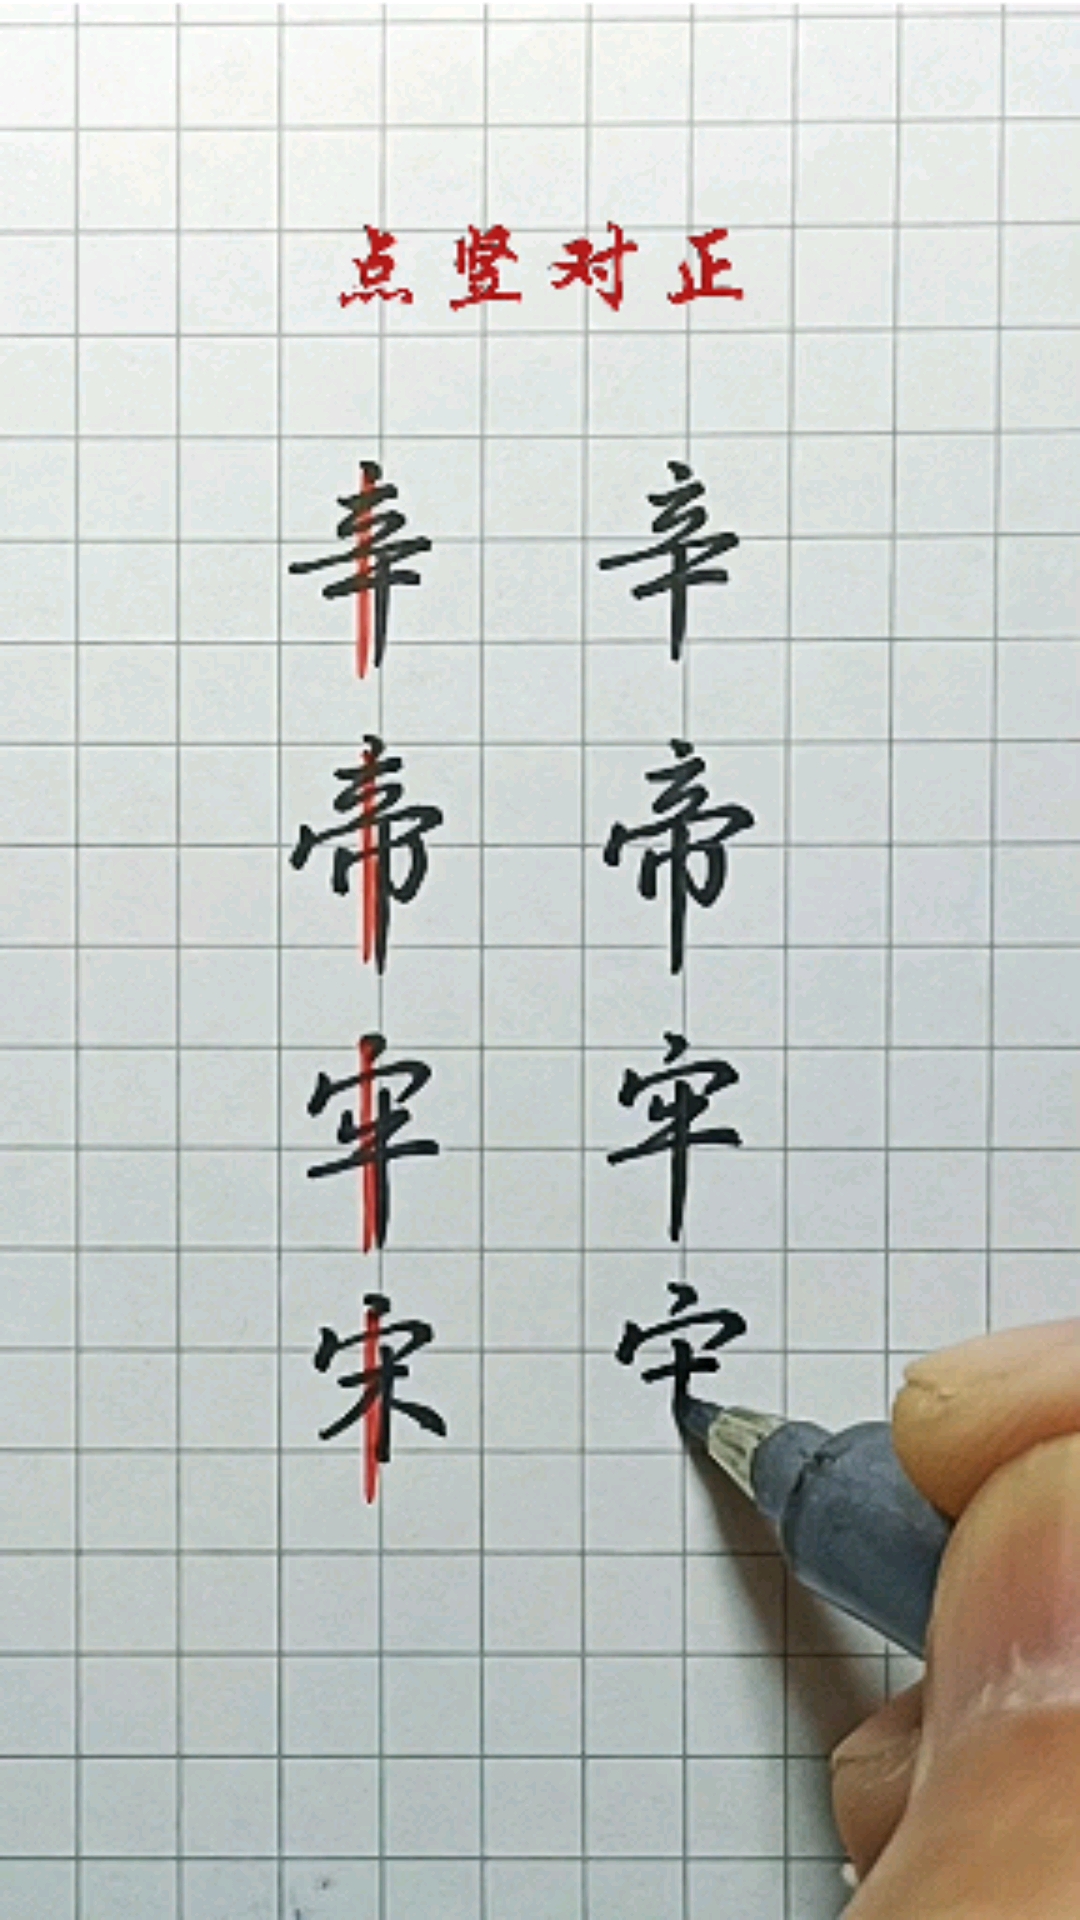 点竖对正
辛 辛
帝 帝
牢 牢
宋